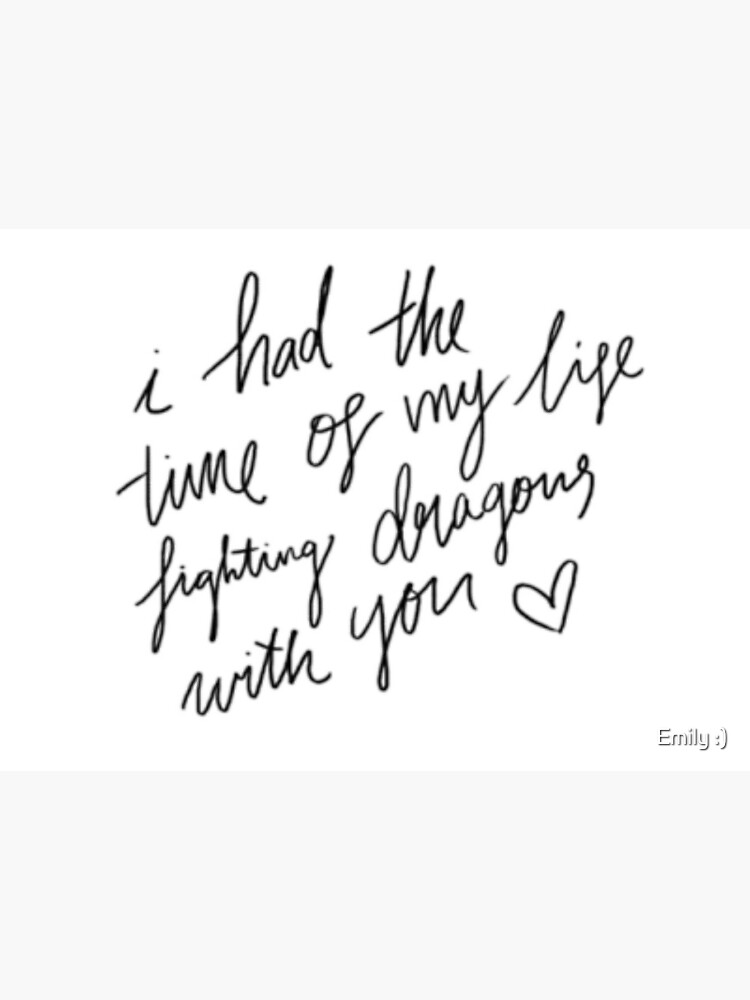 i had the
time of my life
fighting dragons
with you ♡
Emily :)